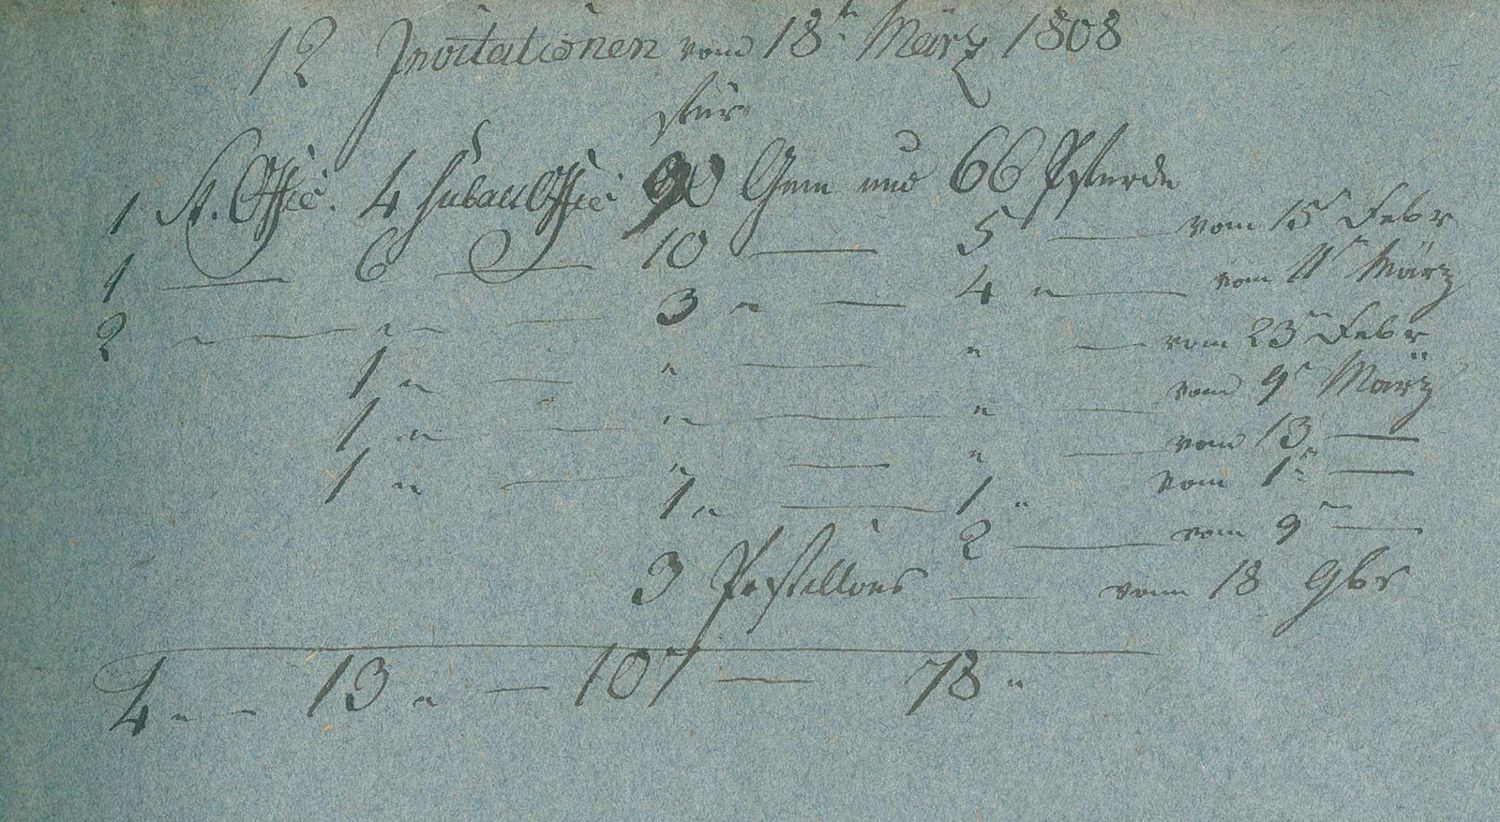 12 Invitationen vom 18t. März 1808
für
1 St. Offic. 4 Subalt Offic 90 Gem und 66 Pferde
1 — 6 — 10 — 5 — vom 15t Febr
2 " — " — 3 " — 4 " — vom 4t März
1 " — " — " — vom 23t Febr
1 " — " — " — vom 9t März
1 " — " — " — vom 13. —
1 " — 1 " vom 1t —
3 Postillions 2 — vom 9t —
— vom 18 9br
4 " — 13 " — 107 — 78 "